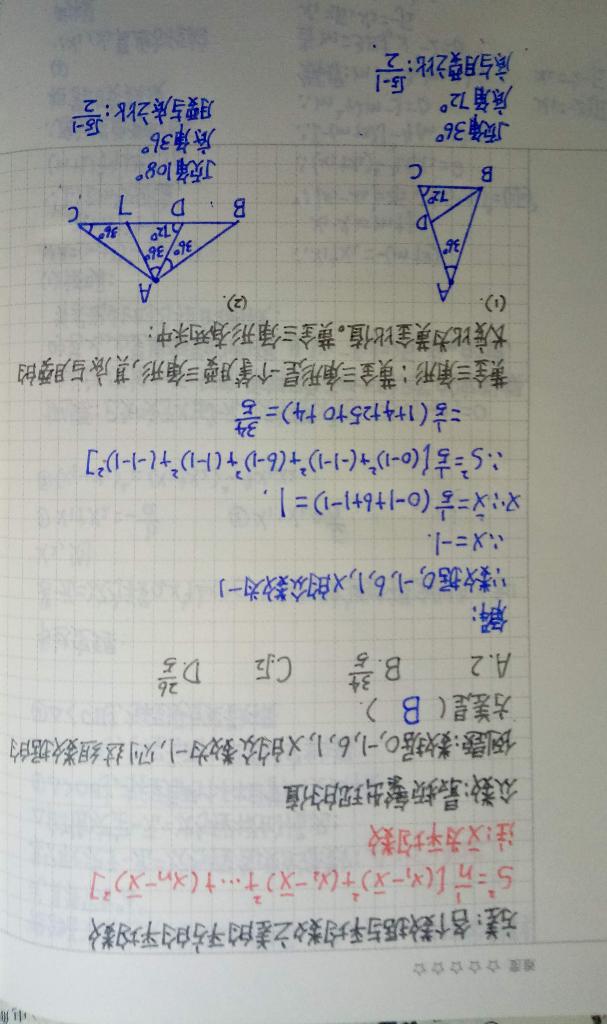 难度 ☆☆☆☆☆☆
方差:各个数据与平均数之差的平方的平均数
S²=1/n[(x₁-x̄)²+(x₂-x̄)²+…+(xn-x̄)²]
注:x̄为平均数
众数:最频繁出现的值
例题:数据0,-1,6,1,x的众数为-1,则这组数据的
方差是( B )
A.2 B.34/5 C.√2 D.26/5
解:
∵数据0,-1,6,1,x的众数为-1
∴x=-1.
x̄=1/5(0-1+6+1-1)=1.
∴S²=1/5[(0-1)²+(-1-1)²+(6-1)²+(1-1)²+(-1-1)²]
=1/5(1+4+25+0+4)=34/5
黄金三角形:黄金三角形是一个等腰三角形,其底与腰的
长度比为黄金比值。黄金三角形有两种:
(1). (2).
A
36°
D
72°
B
C
顶角36°
底角72°
底与腰之比:√5-1/2
A
36° 36°
72° 36°
B D T C
顶角108°
底角36°
腰与底之比:√5-1/2